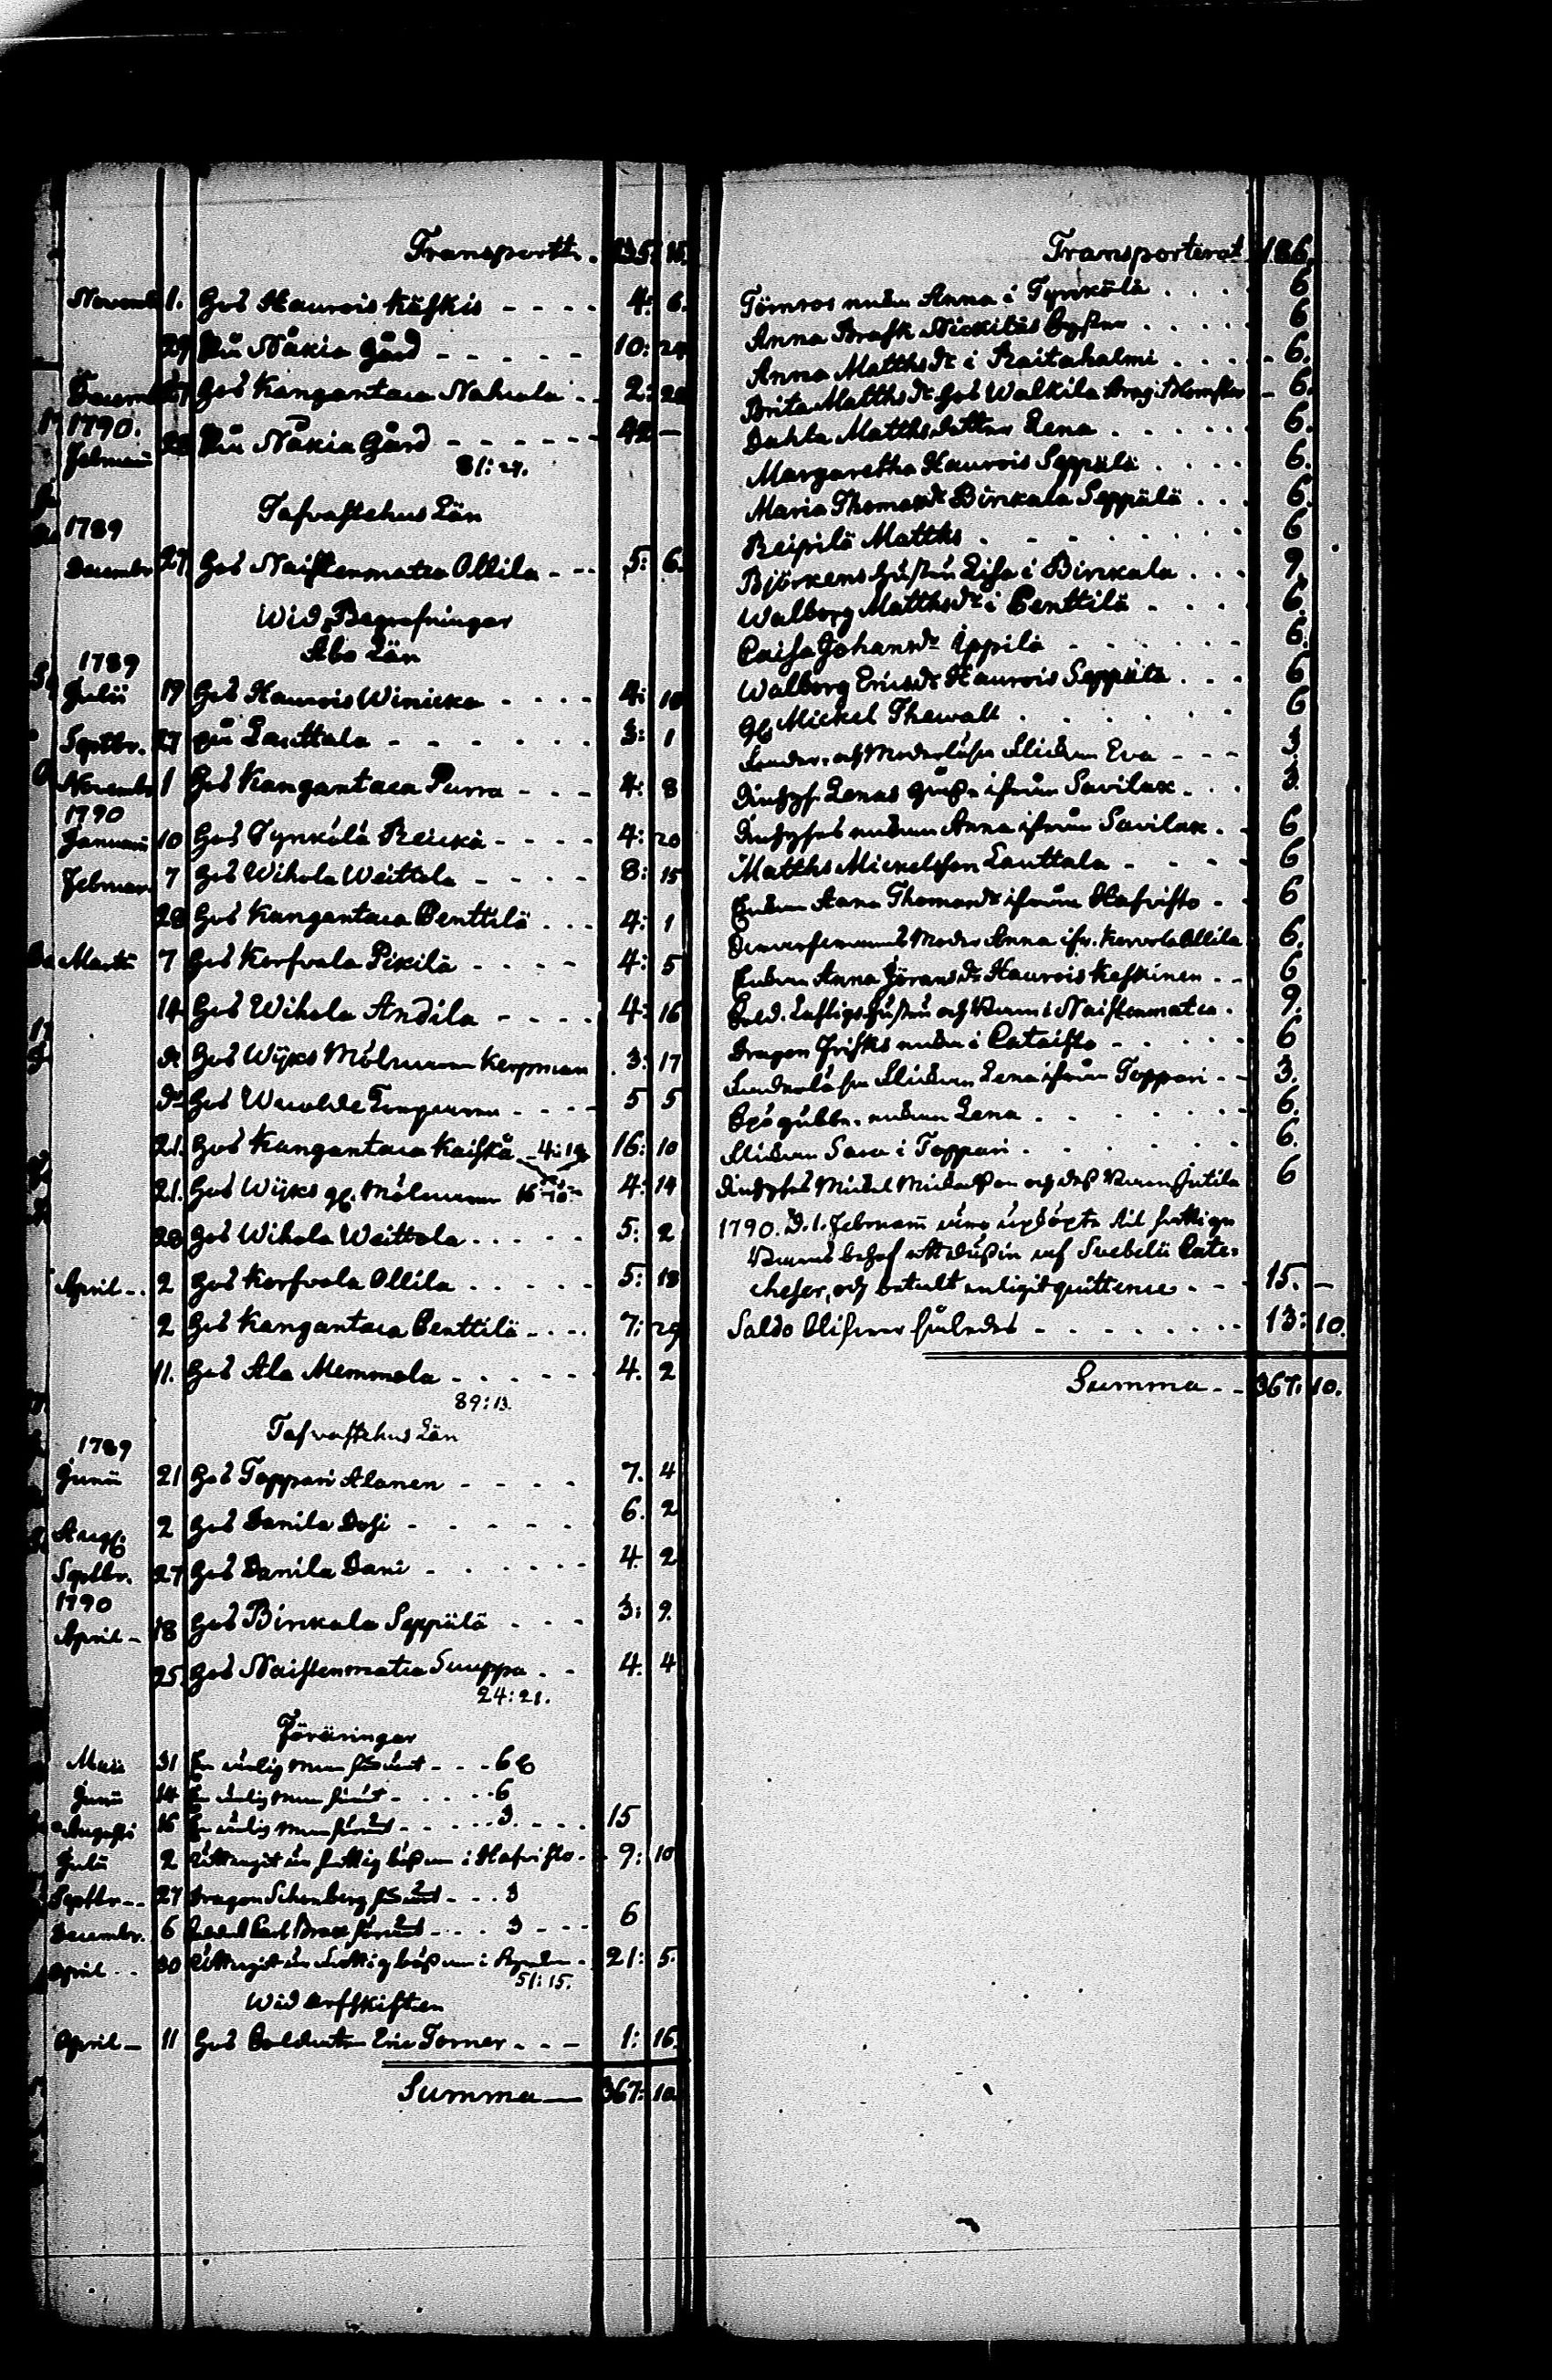 Transportt. 135: 15.
Novemb 1. Hos Haurois Käskis - - - - 4: 6.
29 På Näkia Gård - - - - - 10: 24
Decemb 27 Hos Kangantaca Nahcola - - 2: 20
1790.
Februarii 28 På Näkia Gård - - - - - - 42 -
81: 24.
Tafvastehus Län
1789
Decembr 27. Hos Naistenmatca Ollila - - - 5: 6.
Wid Begrafningar
Åbo Län
1789
Julii 19 Hos Haurois Winicka - - - - 4: 10
Septbr. 27 på Lauttala - - - - - - 3: 1
Novembr 1 Hos Kangantaca Purra - - - 4: 8
1790
Januarii 10 Hos Tynkölä Reickä - - - - 4: 20
Februar. 7 Hos Wihola Weittola - - - - 8: 15
28 Hos Kangantaca Penttilä . . . 4: 1
Martii 7 Hos Korfvola Pikilä - - - - 4: 5
14 Hos Wihola Andila - - - - 4: 16
Hos Wijks Mölnaren Kerpman . 3: 17
do Hos - - - - 5 5
21. Hos Kangantaca Kaiskå 4: 14 16: 10
21. Hos Wijks gl. Mölnaren 16: 10 4: 14
28 Hos Wihola Weittola . . . . . 5: 2
April - - 2 Hos Korfvola Ollila . . . . . 5: 18
2 Hos Kangantaca Penttilä - - - . 7: 29
11. Hos Ala Memmola - . . . . . 4. 2
89: 13.
Tafvastehus Län
1789
Junii 21 Hos Toppari Alanen - - - - 7. 4
Aug. 2 Hos Danila Dosi - - - - - - 6. 2
Septbr. 27 Hos Danila Dani - . . . . . 4. 2
1790
April - 18 Hos Birckala Seppälä . - - - 3: 9.
25. Hos Naistenmatca Suuppa . - 4. 4
24: 21.
Föräringar
Maii 31 En ärlig man förärt - - - 6
Junii 14 En ärlig man förärt - . . . . 6
Augusti 16 En ärlig man förärt - - - . . 3. - . . . 15
Julii 2 Uttagit ur fattig bössan i Hafvisto - 9: 10
Septbr - - 27 Dragon Schonberg förärt - - - 3
Decembr. 6 förärt - - - 3 - - - 6
April - - 30 Uttagit ur fattig bössan i - 21: 5.
51: 15.
Wid arfskiften
April - 11 Hos Soldaten Eric Torner - - - 1: 16.
Summa - 367: 10.
Transporterat 186.
Törnros enkan Anna i Tynkölä . . . . 6
Anna Brask Nickitäs - . . . . 6
Anna Matthsdr i Raitahalmi . . . . - 6.
Brita Matthsdr hos Walkila - 6.
Dahla Matthsdotter Lena . . . . . . 6.
Margaretha Haurois Seppälä . . . . 6.
Maria Thomasdr Birckala Seppälä . . . 6.
Reipilä Matths . - - - - - - - 6
Björkens hustru Lisa i Birckala . . . 9.
Walborg Matthsdr i Penttilä . . . . 6.
Caisa Johansdr Ippilä - - - - - - - 6.
Walborg Ericsdr Haurois Seppälä . . . 6
gl. Mickel Thewalt . . . . . . . 6
Fader- och Moderlösa Flickan Eva - - - 3
Inhyses Lenas ifrån Savilax . . . 3.
Inhyses enkan Anna ifrån Savilax . . 6
Matths Mickelsson Lauttala - - - - - 6
Enkan Anna Thomasdr ifrån Hafvisto - - 6
Moder Anna ifr. Korvola Ollila 6.
Enkan Anna Göransdr Haurois Keskinen - - 6
Sold. Lustigs hustru och Barn i Naistenmatca . 9.
Dragon Frisks enka i Pataisto - - - - - - 6
Faderlösa Flickan Lena ifrån Toppari - - 3.
enkan Lena . - - - - - - 6.
Flickan Sara i Toppari . - - - - - - - 6.
Inhyses Mickel Mickelsson och dess Barn Jutila 6
1790. d. 1. Februarii äro upköpte til fattiga
Barns behof ett dussin af Svebelii Cate-
cheser, och betalt enligit quittence . - - 15. -
Saldo blifver således - - - - - - - - 13: 10.
Summa - - 367: 10.